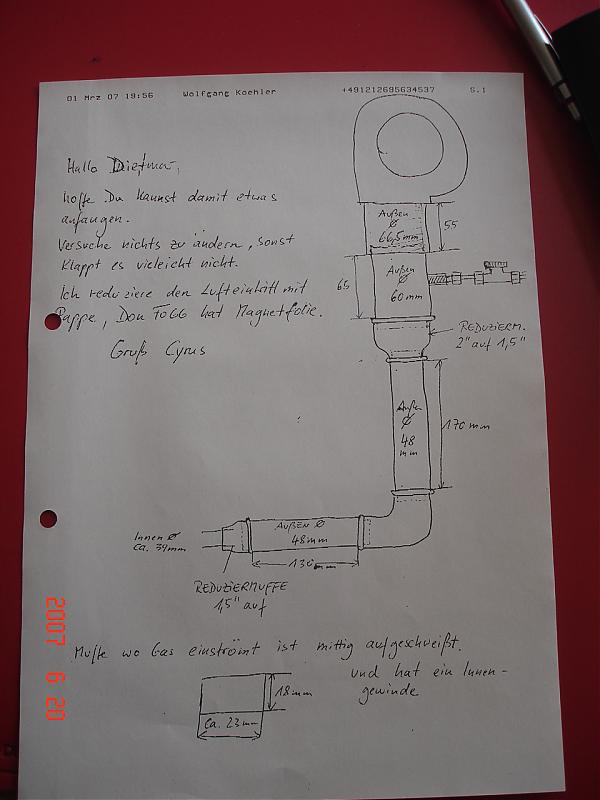 01 Mrz 07 19:56 Wolfgang Koehler +491212695634537 S.1
Hallo Dietmar,
hoffe Du kannst damit etwas
anfangen.
Versuche nichts zu ändern, sonst
klappt es vieleicht nicht.
Ich reduziere den Lufteintritt mit
Pappe, Don FOGG hat Magnetfolie.
Gruß Cyrus
Außen
Ø
66,5mm
55
Außen
Ø
60mm
65
REDUZIERM.
2" auf 1,5"
Außen
Ø
48
mm
170mm
Innen Ø
ca. 39mm
AUßEN Ø
48mm
130mm
REDUZIERMUFFE
1,5" auf
Muffe wo Gas einströmt ist mittig aufgeschweißt.
und hat ein Innen-
gewinde
18mm
ca. 23mm
2007 6 20